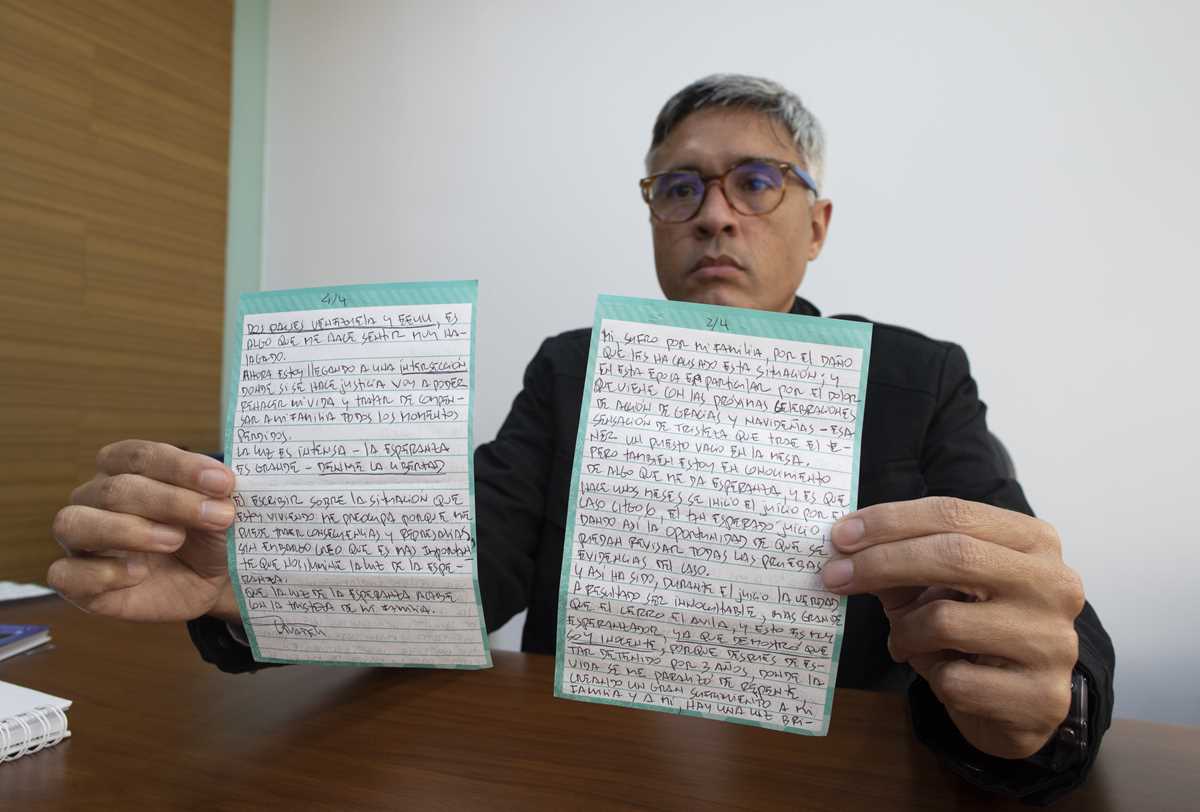 4/4
DOS PAISES VENEZUELA Y EEUU, ES
ALGO QUE ME HACE SENTIR MUY HA-
LAGADO.
AHORA ESTOY LLEGANDO A UNA INTERSECCIÓN
DONDE SI SE HACE JUSTICIA VOY A PODER
REHACER MI VIDA Y TRATAR DE COMPEN-
SAR A MI FAMILIA TODOS LOS MOMENTOS
PERDIDOS.
LA LUZ ES INTENSA - LA ESPERANZA
ES GRANDE - DENME LA LIBERTAD
EL ESCRIBIR SOBRE LA SITUACIÓN QUE
ESTOY VIVIENDO ME PREOCUPA PORQUE ME
PUEDE TRAER CONSECUENCIAS Y REPRESALIAS
SIN EMBARGO CREO QUE ES MAS IMPORTAN-
TE QUE NOS ILUMINE LA LUZ DE LA ESPE-
RANZA.
QUE LA LUZ DE LA ESPERANZA ACABE
CON LA TRISTEZA DE MI FAMILIA.
2/4
MI, SUFRO POR MI FAMILIA, POR EL DAÑO
QUE LES HA CAUSADO ESTA SITUACIÓN; Y
EN ESTA EPOCA EN PARTICULAR POR EL DOLOR
QUE VIENE CON LAS PRÓXIMAS CELEBRACIONES
DE ACCIÓN DE GRACIAS Y NAVIDEÑAS - ESA
SENSACIÓN DE TRISTEZA QUE TRAE EL TE-
NER UN PUESTO VACIO EN LA MESA.
PERO TAMBIEN ESTOY EN CONOCIMIENTO
DE ALGO QUE ME DA ESPERANZA, Y ES QUE
HACE UNOS MESES SE INICIO EL JUICIO POR EL
CASO CITGO 6, EL TAN ESPERADO JUICIO
DANDO ASI LA OPORTUNIDAD DE QUE SE
PUEDAN REVISAR TODAS LAS PRUEBAS
EVIDENCIAS DEL CASO.
Y ASI HA SIDO, DURANTE EL JUICIO LA VERDAD
A RESULTADO SER INNOCULTABLE, MAS GRANDE
QUE EL CERRO EL AVILA, Y ESTO ES MUY
ESPERANZADOR, YA QUE DEMOSTRÓ QUE
SOY INOCENTE, PORQUE DESPUES DE ES-
TAR DETENIDO POR 3 AÑOS, DONDE LA
VIDA SE ME PARALIZÓ DE REPENTE
CREANDO UN GRAN SUFRIMIENTO A MI
FAMILIA Y A MI, HAY UNA LUZ BRI-